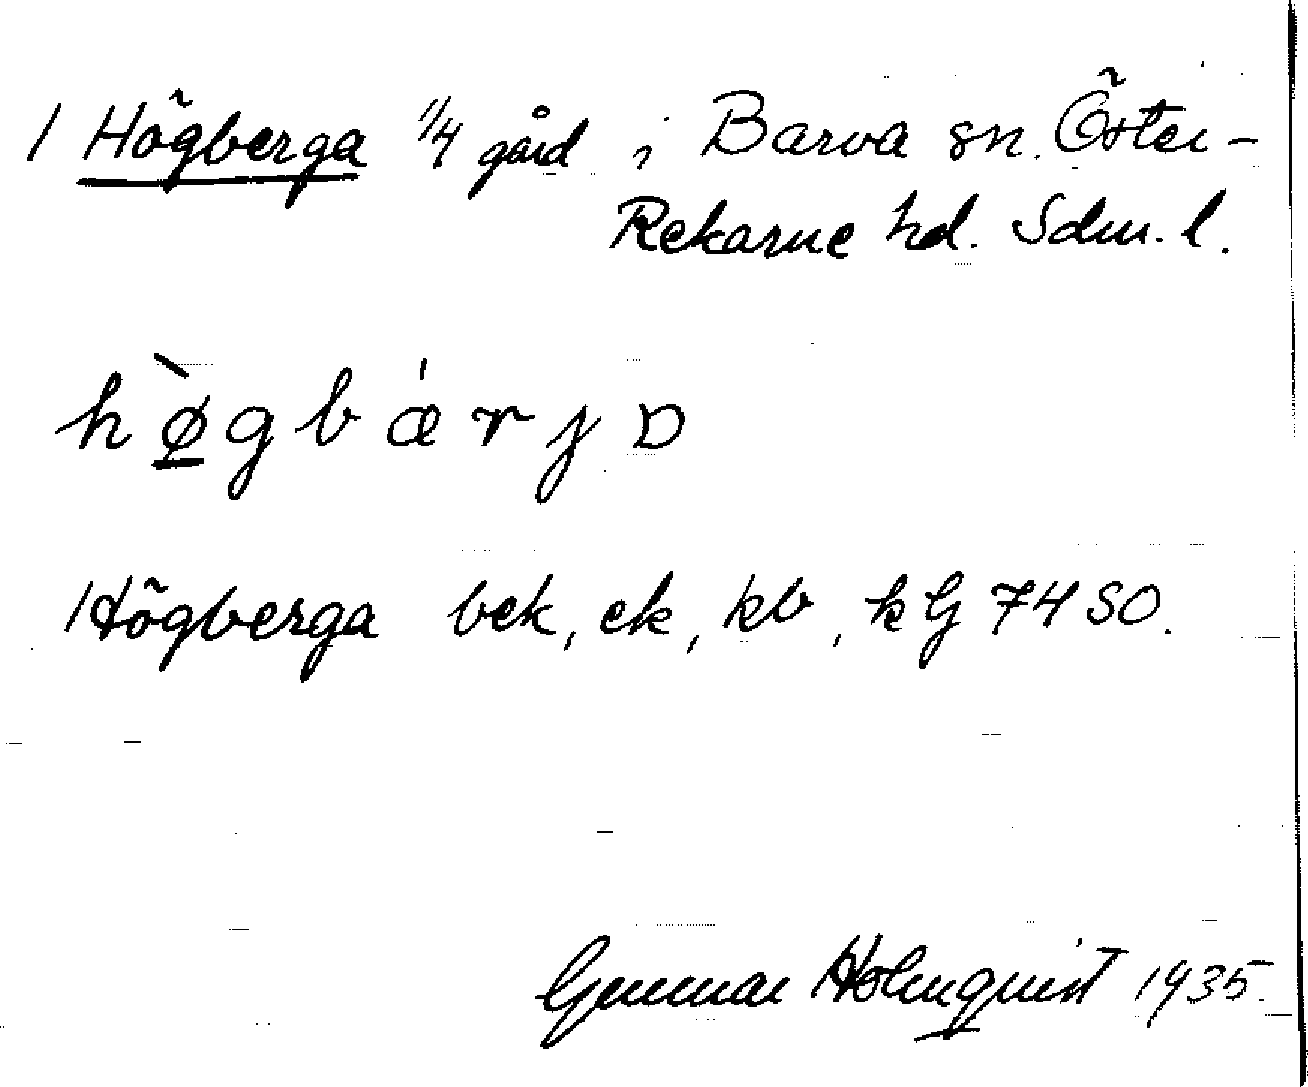 1 Högberga 1/4 gård i Barva sn. Öster-
Rekarne hd. Sdm. l.
hø̀gbærjɒ
Högberga bek, ek, kb, kG 74 SO.
Gunnar Holmquist 1935.